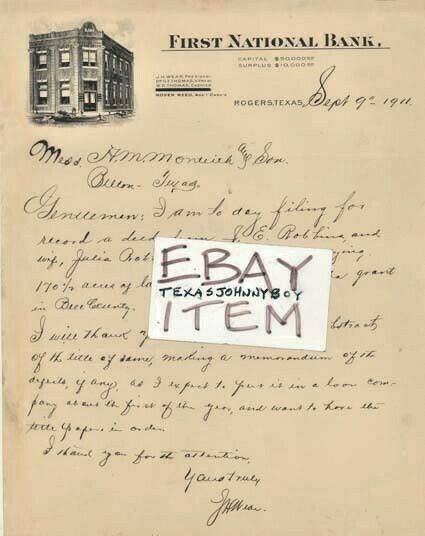 FIRST NATIONAL BANK,
CAPITAL $50,000.00
SURPLUS $10,000.00
J.H. WEAR, PRESIDENT
W.E. THOMAS, CASHIER
ROGERS, TEXAS, Sept 9" 1911
Mess. H.M. & Son.
Belton Texas.
Gentlemen: I am to day filing for
record a deed E. Robbins and
wife, Julia
170½ acres of grant
in Bell County.
I will thank abstract
of the title of same, making a memorandum of the
defects, if any, as I expect to put it in a loan com-
pany about the first of the year, and want to have the
title papers in order.
I thank you for the attention,
Yours truly
JHWear.
EBAY
TEXASJOHNNYBOY
ITEM